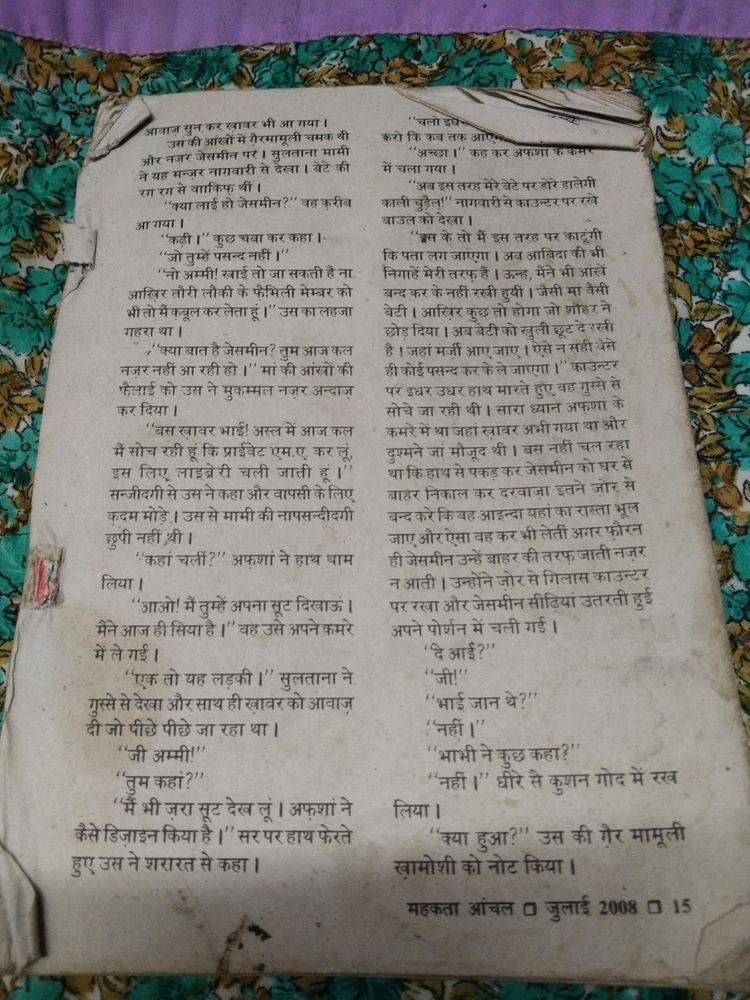 आवाज़ सुन कर ख़ावर भी आ गया।
उस की आंखों में ग़ैरमामूली चमक थी
और नज़र जेसमीन पर। सुलताना मामी
ने यह मन्ज़र नागवारी से देखा। बेटे की
रग रग से वाकिफ़ थीं।
“क्या लाई हो जेसमीन?” वह क़रीब
आ गया।
“कढ़ी।” कुछ चबा कर कहा।
“जो तुम्हें पसन्द नहीं।”
“नो अम्मी! खाई तो जा सकती है ना
आख़िर तौरी लौकी के फैमिली मेम्बर को
भी तो मैं क़बूल कर लेता हूं।” उस का लहजा
गहरा था।
“क्या बात है जेसमीन? तुम आज कल
नज़र नहीं आ रही हो।” मां की आंखों की
फैलाई को उस ने मुकम्मल नज़र अन्दाज़
कर दिया।
“बस ख़ावर भाई! अस्ल में आज कल
मैं सोच रही हूं कि प्राईवेट एम.ए. कर लूं,
इस लिए लाइब्रेरी चली जाती हूं।”
सन्जीदगी से उस ने कहा और वापसी के लिए
क़दम मोड़े। उस से मामी की नापसन्दीदगी
छुपी नहीं थी।
“कहां चलीं?” अफ़शां ने हाथ थाम
लिया।
“आओ! मैं तुम्हें अपना सूट दिखाऊं।
मैंने आज ही सिया है।” वह उसे अपने कमरे
में ले गई।
“एक तो यह लड़की।” सुलताना ने
गुस्से से देखा और साथ ही ख़ावर को आवाज़
दी जो पीछे पीछे जा रहा था।
“जी अम्मी!”
“तुम कहां?”
“मैं भी ज़रा सूट देख लूं। अफ़शां ने
कैसे डिज़ाइन किया है।” सर पर हाथ फेरते
हुए उस ने शरारत से कहा।
“चलो इधर
करो कि कब तक
“अच्छा।” कह कर अफ़शां के कमरे
में चला गया।
“अब इस तरह मेरे बेटे पर डोरे डालेगी
काली चुड़ैल!” नागवारी से काउन्टर पर रखे
बाउल को देखा।
“इस के तो मैं इस तरह पर काटूंगी
कि पता लग जाएगा। अब आबिदा की भी
निगाहें मेरी तरफ़ हैं। ऊन्ह, मैंने भी आंखें
बन्द कर के नहीं रखी हुयीं। जैसी मां वैसी
बेटी। आख़िर कुछ तो होगा जो शौहर ने
छोड़ दिया। अब बेटी को खुली छूट दे रखी
है। जहां मर्ज़ी आए जाए। ऐसे न सही वैसे
ही कोई पसन्द कर के ले जाएगा।” काउन्टर
पर इधर उधर हाथ मारते हुए वह गुस्से से
सोचे जा रही थी। सारा ध्यान अफ़शां के
कमरे में था जहां ख़ावर अभी गया था और
दुश्मने जां मौजूद थी। बस नहीं चल रहा
था कि हाथ से पकड़ कर जेसमीन को घर से
बाहर निकाल कर दरवाज़ा इतने ज़ोर से
बन्द करे कि वह आइन्दा यहां का रास्ता भूल
जाए और ऐसा वह कर भी लेतीं अगर फ़ौरन
ही जेसमीन उन्हें बाहर की तरफ़ जाती नज़र
न आती। उन्होंने ज़ोर से गिलास काउन्टर
पर रखा और जेसमीन सीढ़ियां उतरती हुई
अपने पोर्शन में चली गई।
“दे आई?”
“जी!”
“भाई जान थे?”
“नहीं।”
“भाभी ने कुछ कहा?”
“नहीं।” धीरे से कुशन गोद में रख
लिया।
“क्या हुआ?” उस की ग़ैर मामूली
ख़ामोशी को नोट किया।
महकता आंचल □ जुलाई 2008 □ 15